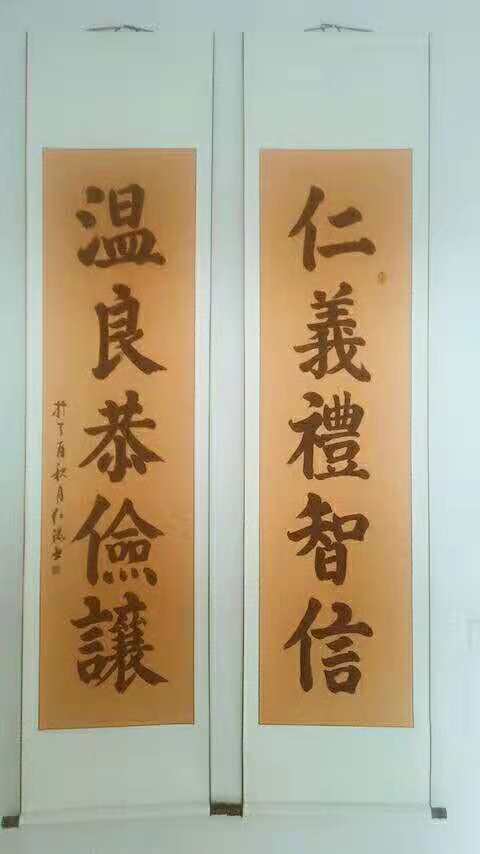 仁義禮智信
温良恭儉讓
於丁酉秋月